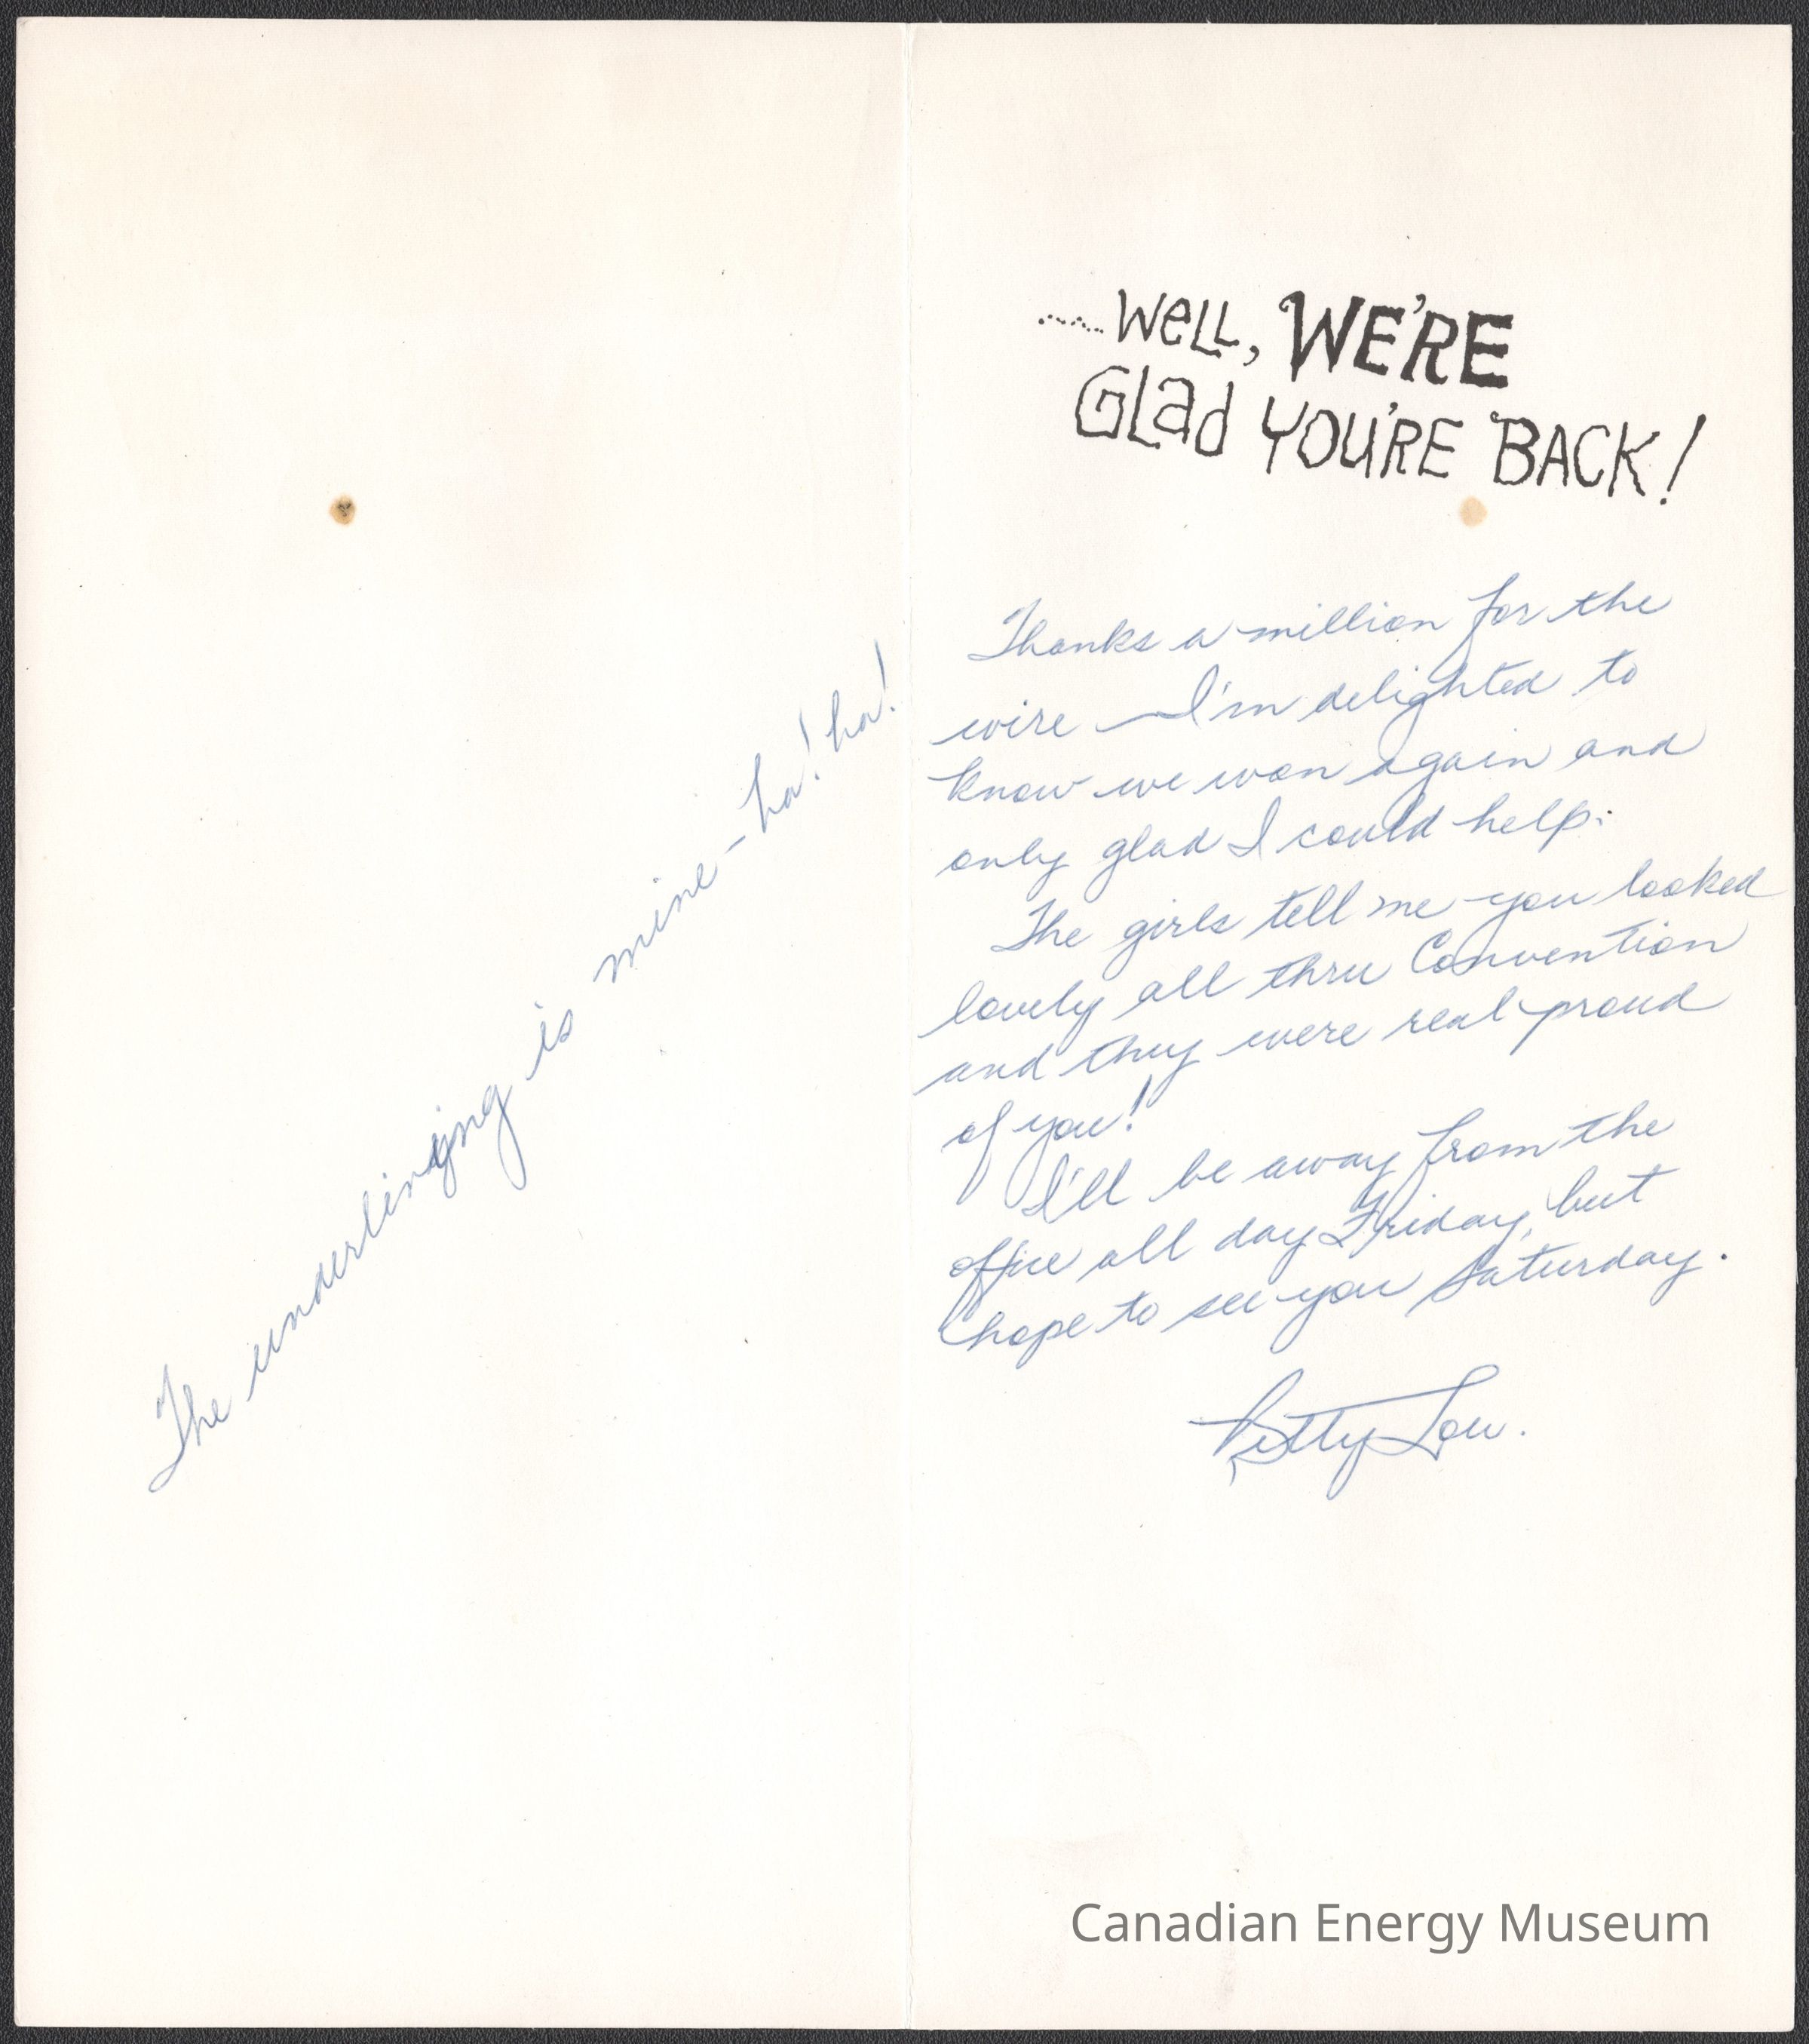 The underlinging is mine - ha! ha!
......Well, WE'RE
Glad YOU'RE BACK!
Thanks a million for the
wire — I'm delighted to
know we won again and
only glad I could help.
The girls tell me you looked
lovely all thru Convention
and they were real proud
of you!
I'll be away from the
office all day Friday, but
hope to see you Saturday.
Betty Lou.
Canadian Energy Museum